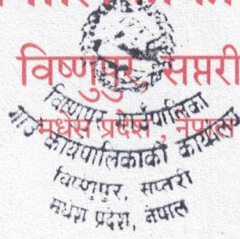 विष्णुपुर, सप्तरी
मधेस प्रदेश, नेपाल
विष्णुपुर गाउँपालिका
गाउँ कार्यपालिकाको कार्यालय
विष्णुपुर, सप्तरी
मधेश प्रदेश, नेपाल